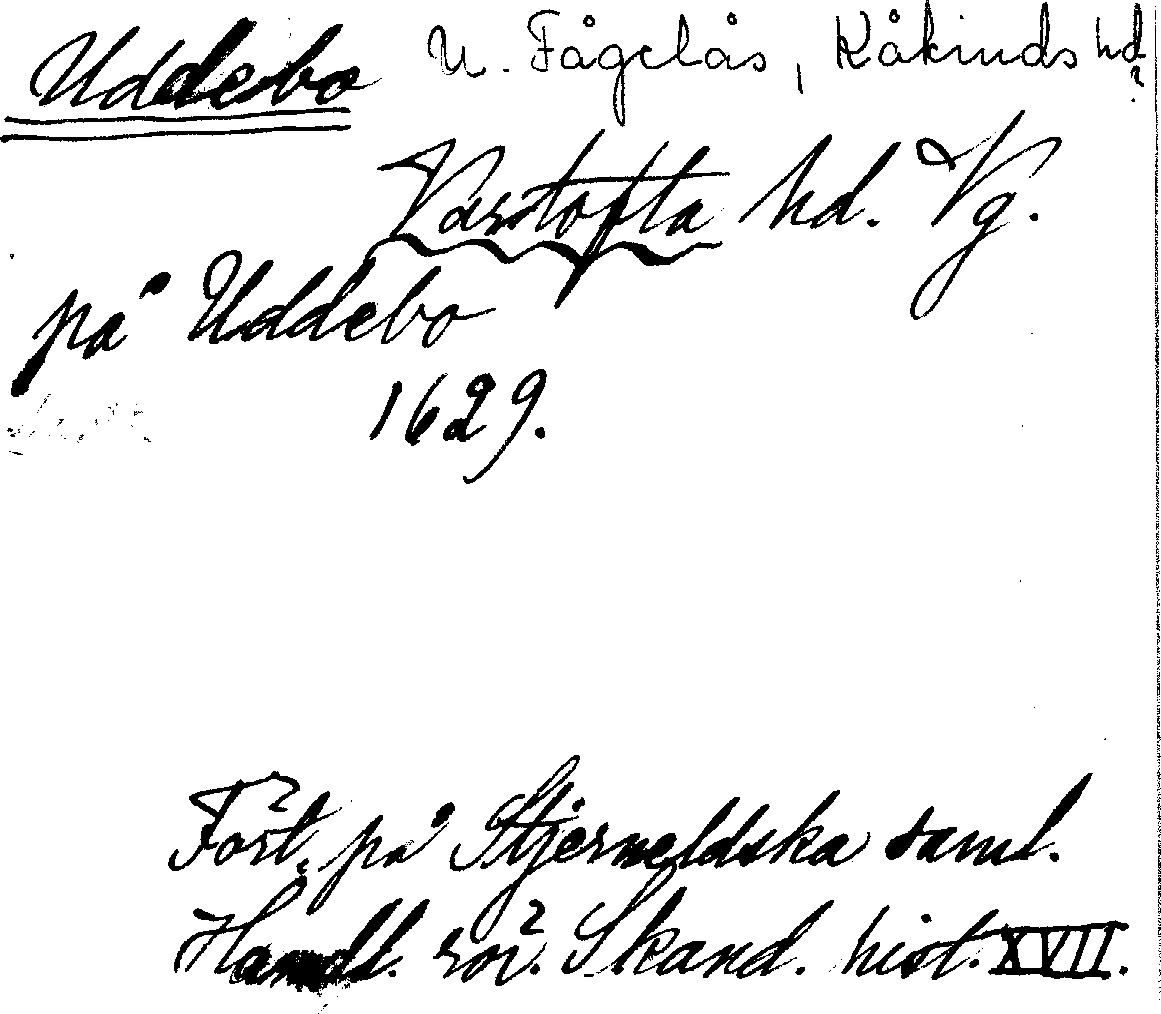 Uddebo U. Fågelås, Kåkinds hd?
Vartofta hd. Vg.
på Uddebo
1629.
Fört. på Stjerneldska saml.
Handl. rör. Skand. hist. XVII.